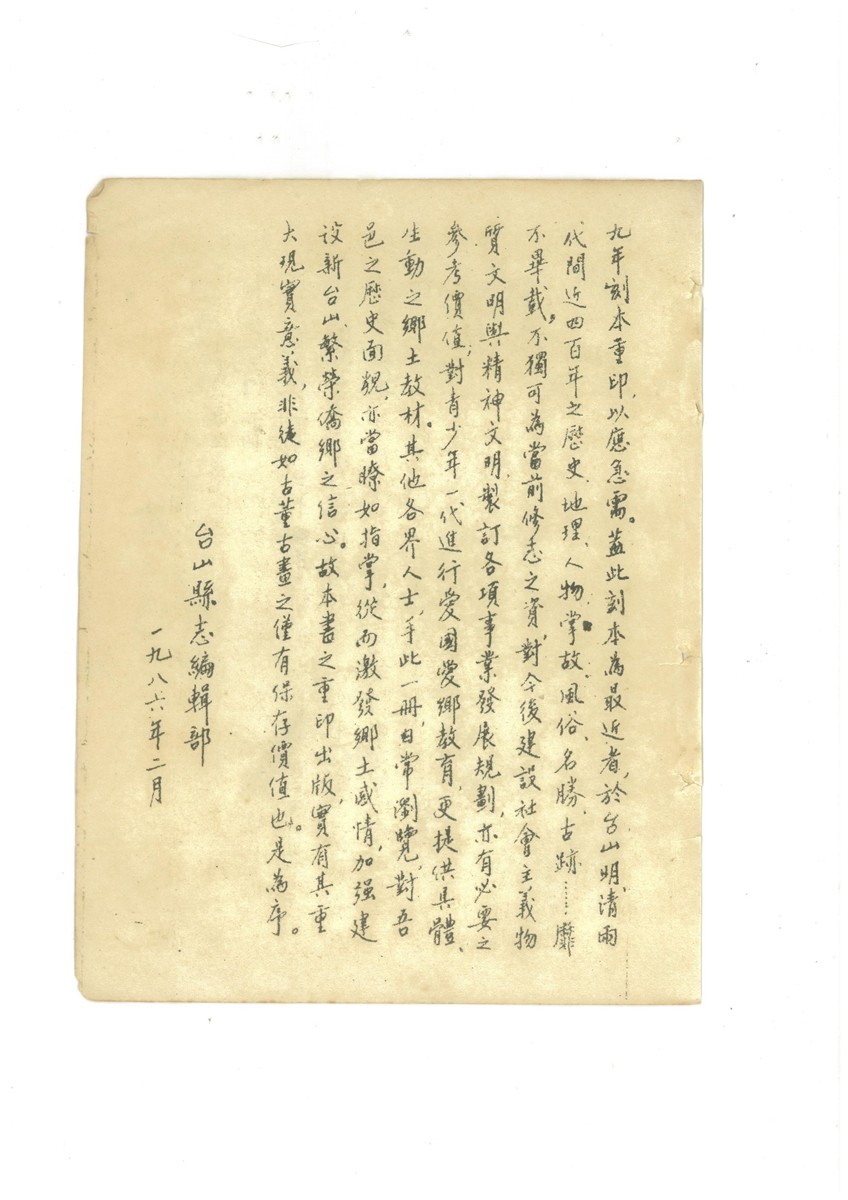 九年刻本重印，以應急需。蓋此刻本為最近者，於台山明、清兩
代間近四百年之歷史、地理、人物、掌故、風俗、名勝、古跡……靡
不畢載。不獨可為當前修志之資，對今後建設社會主義物
質文明與精神文明，製訂各項事業發展規劃，亦有必要之
參考價值；對青少年一代進行愛國愛鄉教育，更提供具體、
生動之鄉土教材。其他各界人士，手此一冊，日常瀏覽，對吾
邑之歷史面貌，亦當瞭如指掌，從而激發鄉土感情，加强建
設新台山、繁榮僑鄉之信心。故本書之重印出版，實有其重
大現實意義，非徒如古董古畫之僅有保存價值也。是為序。
台山縣志編輯部
一九八六年二月